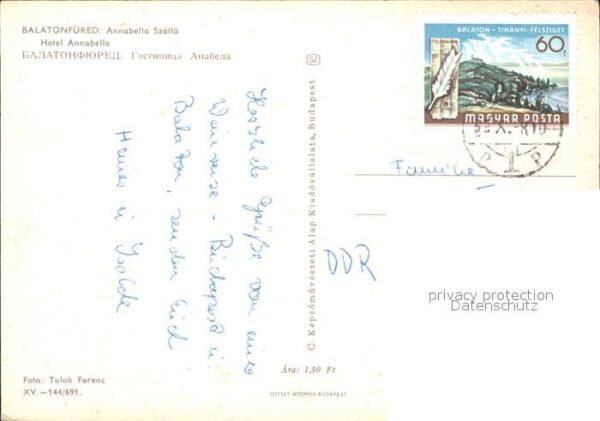 BALATONFÜRED: Annabella Szálló
Hotel Annabella
БАЛАТОНФЮРЕД: Гостиница Анабела
Herzliche Grüße von einer
Budapest u.
Balaton, senden Euch
Hannes u. Isolde
Foto: Tulok Ferenc
XV.—144/691.
© Képzőművészeti Alap Kiadóvállalata, Budapest
Ára: 1,50 Ft
OFFSET-NYOMDA BUDAPEST
BALATON - TIHANYI-FÉLSZIGET
60f
MAGYAR POSTA
P 1 P
Familie
DDR
privacy protection
Datenschutz